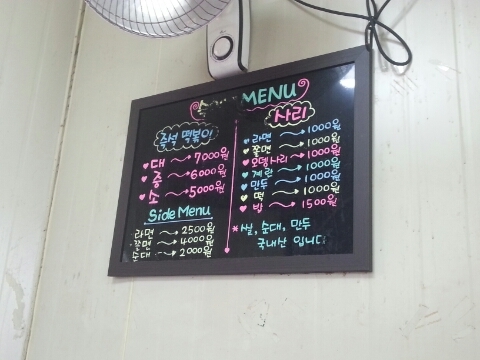 MENU
즉석 떡볶이
대 7000원
중 6000원
소 5000원
Side Menu
라면 2500원
쫄면 4000원
순대 2000원
사리
라면 1000원
쫄면 1000원
오뎅사리 1000원
계란 1000원
만두 1000원
떡 1000원
밥 1500원
*쌀, 순대, 만두
국내산 입니다